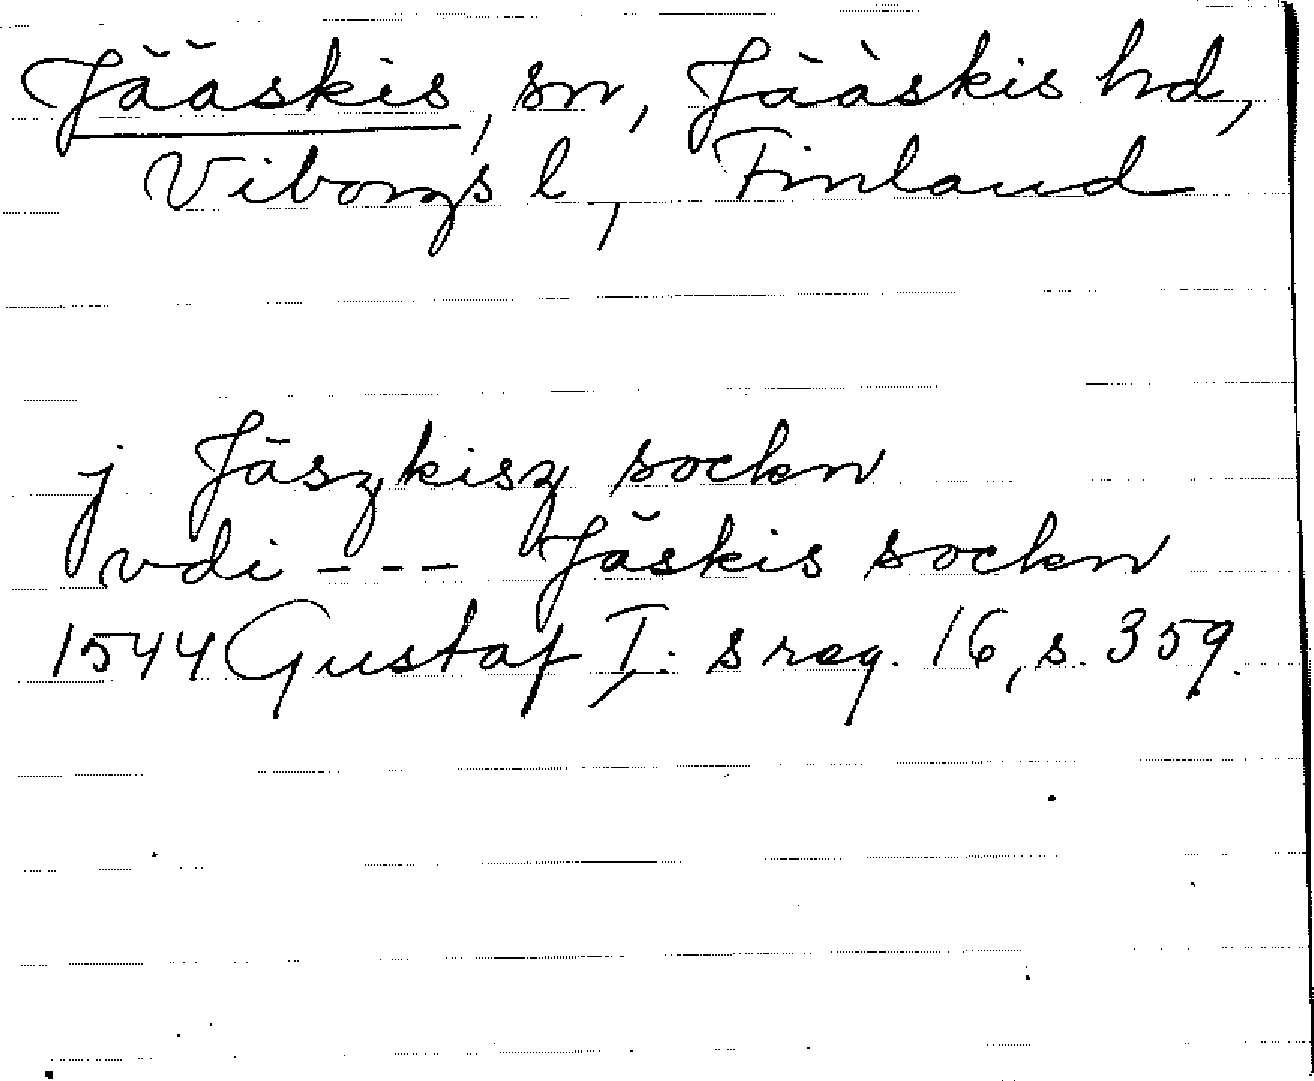 Jääskis, sn, Jääskis hd,
Viborgs l, Finland
j Jäszkisz sockn
vdi --- Jäskis sockn
1544 Gustaf I:s reg. 16, s. 359.